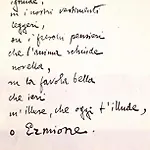 ignude,
su i nostri vestimenti
leggeri,
su i freschi pensieri
che l'anima schiude
novella,
su la favola bella
che ieri
m'illuse, che oggi t'illude,
o Ermione.